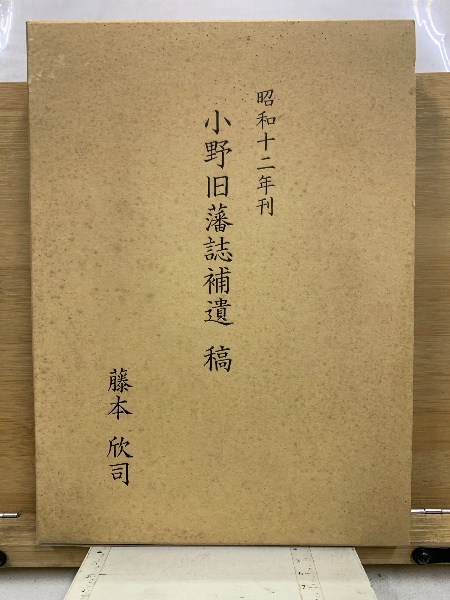 昭和十二年刊
小野旧藩誌補遺 稿
藤本 欣司